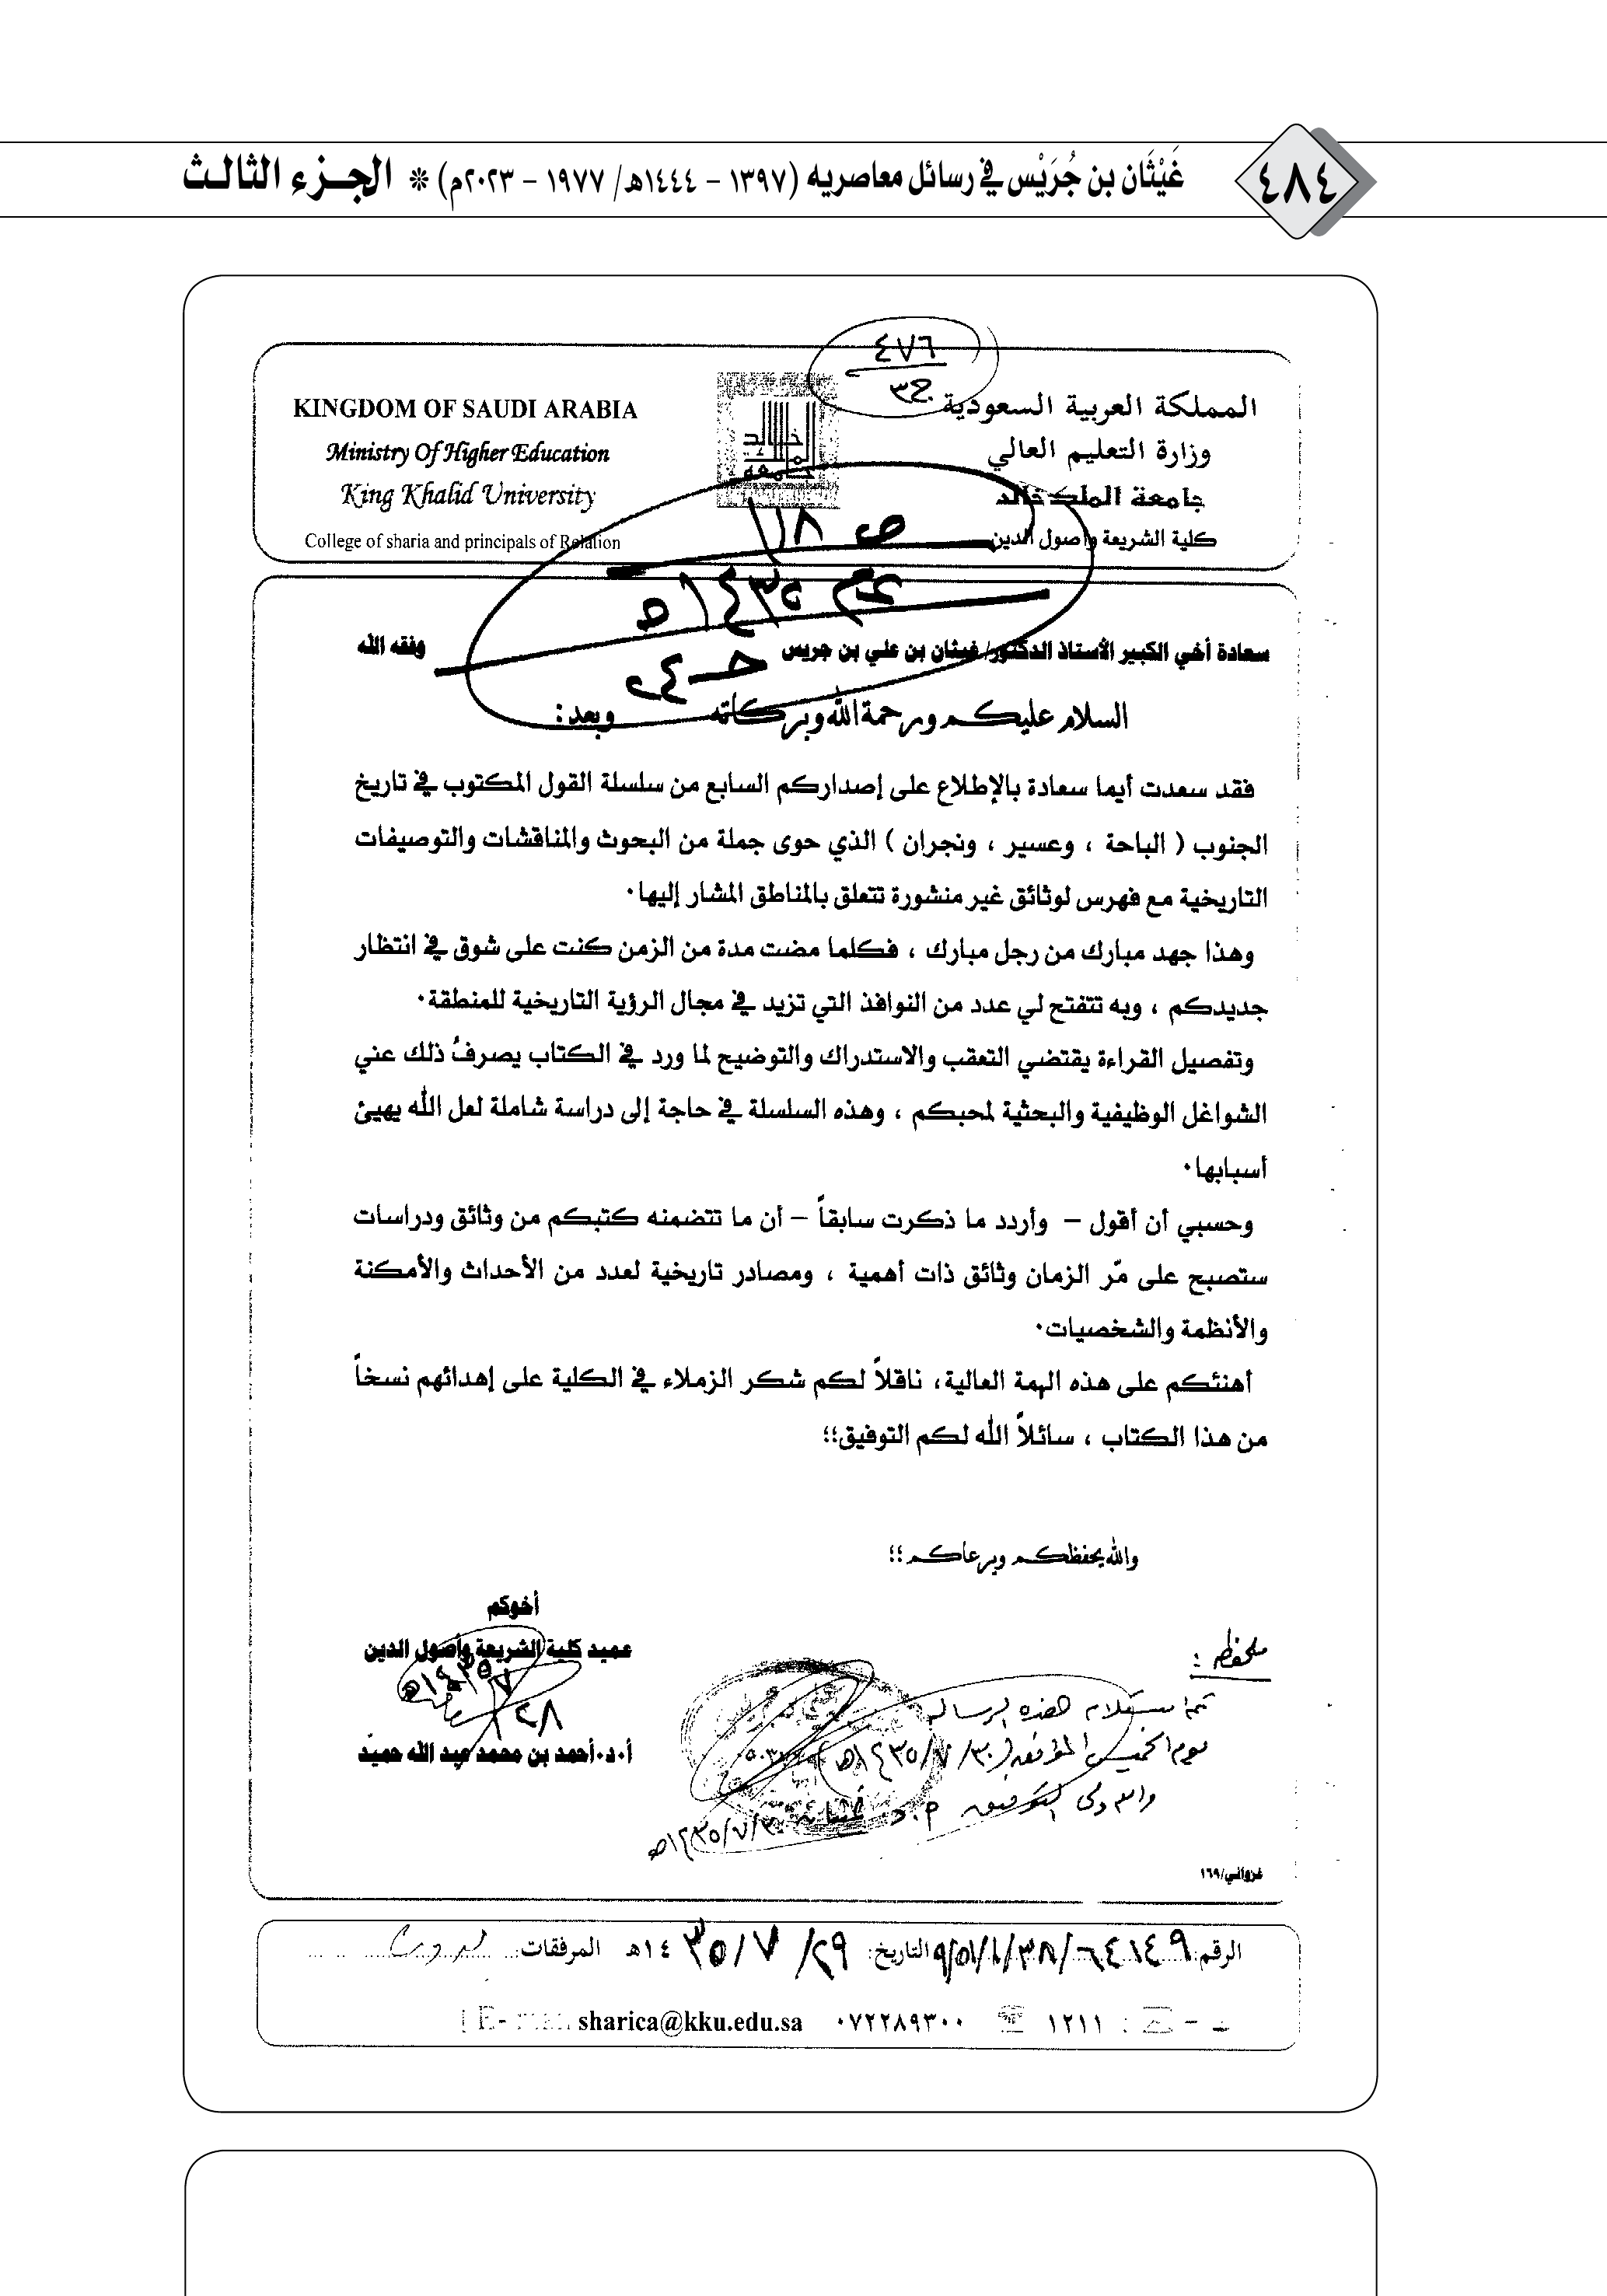 ٤٨٤
غَيْثَان بن جُرَيْس في رسائل معاصريه (١٣٩٧ – ١٤٤٤هـ/ ١٩٧٧ – ٢٠٢٣م) * الجزء الثالث
٤٧٦
ج٣
المملكة العربية السعودية
وزارة التعليم العالي
جامعة الملك خالد
كلية الشريعة وأصول الدين
KINGDOM OF SAUDI ARABIA
Ministry Of Higher Education
King Khalid University
College of sharia and principals of Relation
سعادة أخي الكبير الأستاذ الدكتور/ غيثان بن علي بن جريس وفقه الله
السلام عليكم ورحمة الله وبركاته وبعد:
فقد سعدت أيما سعادة بالإطلاع على إصداركم السابع من سلسلة القول المكتوب في تاريخ
الجنوب ( الباحة ، وعسير ، ونجران ) الذي حوى جملة من البحوث والمناقشات والتوصيفات
التاريخية مع فهرس لوثائق غير منشورة تتعلق بالمناطق المشار إليها٠
وهذا جهد مبارك من رجل مبارك ، فكلما مضت مدة من الزمن كنت على شوق في انتظار
جديدكم ، وبه تتفتح لي عدد من النوافذ التي تزيد في مجال الرؤية التاريخية للمنطقة٠
وتفصيل القراءة يقتضي التعقب والاستدراك والتوضيح لما ورد في الكتاب يصرفُ ذلك عني
الشواغل الوظيفية والبحثية لمحبكم ، وهذه السلسلة في حاجة إلى دراسة شاملة لعل الله يهيئ
أسبابها٠
وحسبي أن أقول – وأردد ما ذكرت سابقاً – أن ما تتضمنه كتبكم من وثائق ودراسات
ستصبح على مّر الزمان وثائق ذات أهمية ، ومصادر تاريخية لعدد من الأحداث والأمكنة
والأنظمة والشخصيات٠
أهنئكم على هذه الهمة العالية، ناقلاً لكم شكر الزملاء في الكلية على إهدائهم نسخاً
من هذا الكتاب ، سائلاً الله لكم التوفيق؛؛
والله يحفظكم ويرعاكم؛؛
أخوكم
عميد كلية الشريعة وأصول الدين
أ٠د٠أحمد بن محمد عبد الله حميد
ملحظ :
تم استلام هذه الرسالة
يوم الخميس الموافق (١٤٣٥/٧/٣٠هـ)
والله ولي التوفيق
١٤٣٥/٧/٣٠هـ
غزواني/١٦٩
الرقم: التاريخ: ٢٩/ ٧/ ١٤٣٥هـ المرفقات:
١٢١١ ٠٧٢٢٨٩٣٠٠ sharica@kku.edu.sa